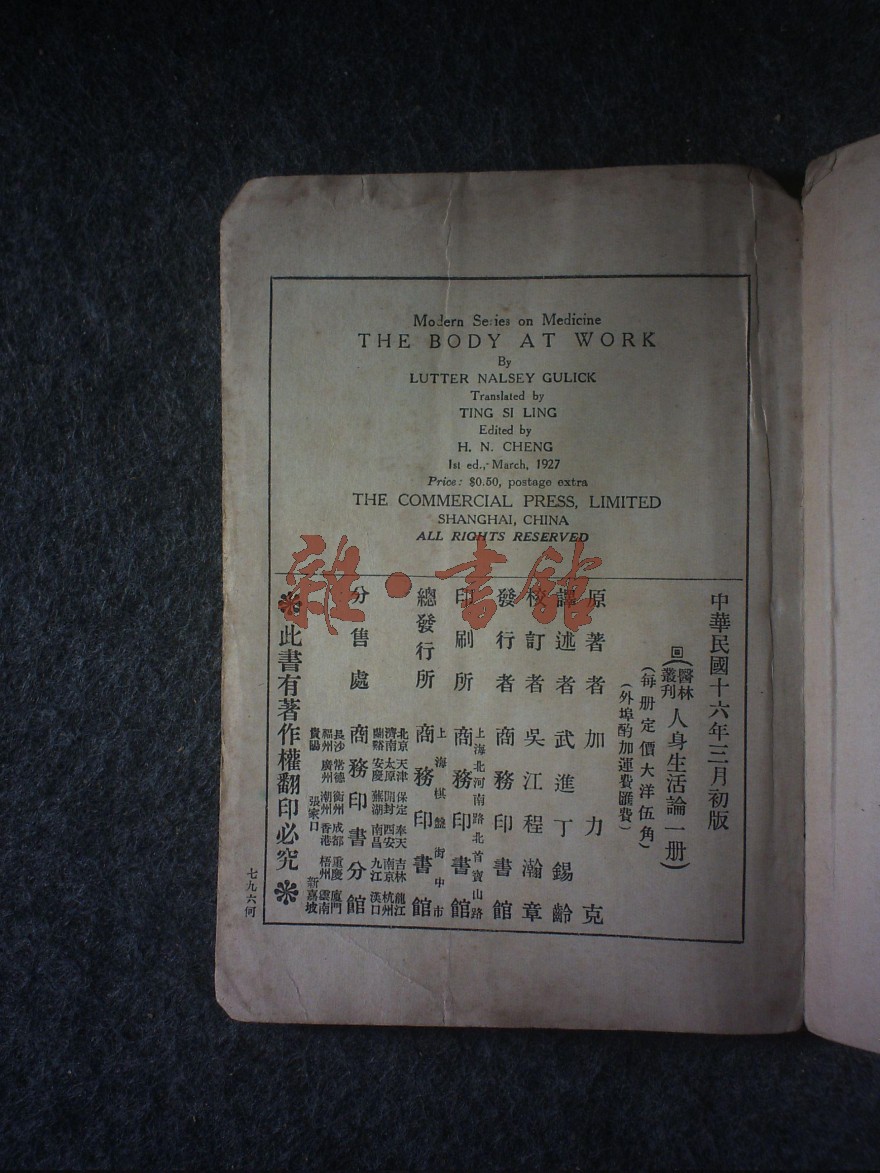 Modern Series on Medicine
THE BODY AT WORK
By
LUTTER NALSEY GULICK
Translated by
TING SI LING
Edited by
H. N. CHENG
1st ed., March, 1927
Price: $0.50, postage extra
THE COMMERCIAL PRESS, LIMITED
SHANGHAI, CHINA
ALL RIGHTS RESERVED
雜·書館
中華民國十六年三月初版
回(醫林叢刊 人身生活論一册)
(每册定價大洋伍角)
(外埠酌加運費匯費)
原著者 加力克
譯述者 武進丁錫齡
校訂者 吳江程瀚章
發行者 商務印書館
印刷所 上海北河南路北首寶山路 商務印書館
總發行所 上海棋盤街中市 商務印書館
分售處 商務印書分館
北京 天津 保定 奉天 吉林 龍江
濟南 太原 開封 西安 南京 杭州
蘭谿 安慶 蕪湖 南昌 九江 漢口
長沙 常德 衡州 成都 重慶 廈門
福州 廣州 潮州 香港 梧州 雲南
貴陽 張家口 新嘉坡
此書有著作權翻印必究
七九六何